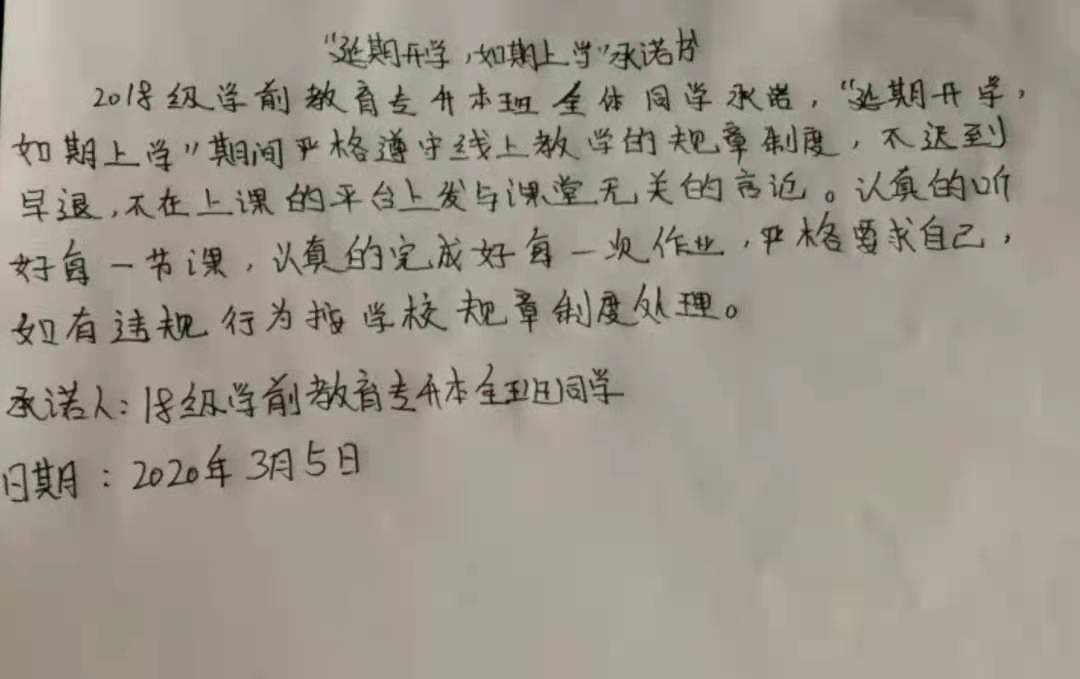 “延期开学，如期上学”承诺书
2018级学前教育专升本班全体同学承诺，“延期开学，
如期上学”期间严格遵守线上教学的规章制度，不迟到
早退，不在上课的平台上发与课堂无关的言论。认真的听
好每一节课，认真的完成好每一次作业，严格要求自己，
如有违规行为按学校规章制度处理。
承诺人：18级学前教育专升本全班同学
日期：2020年3月5日